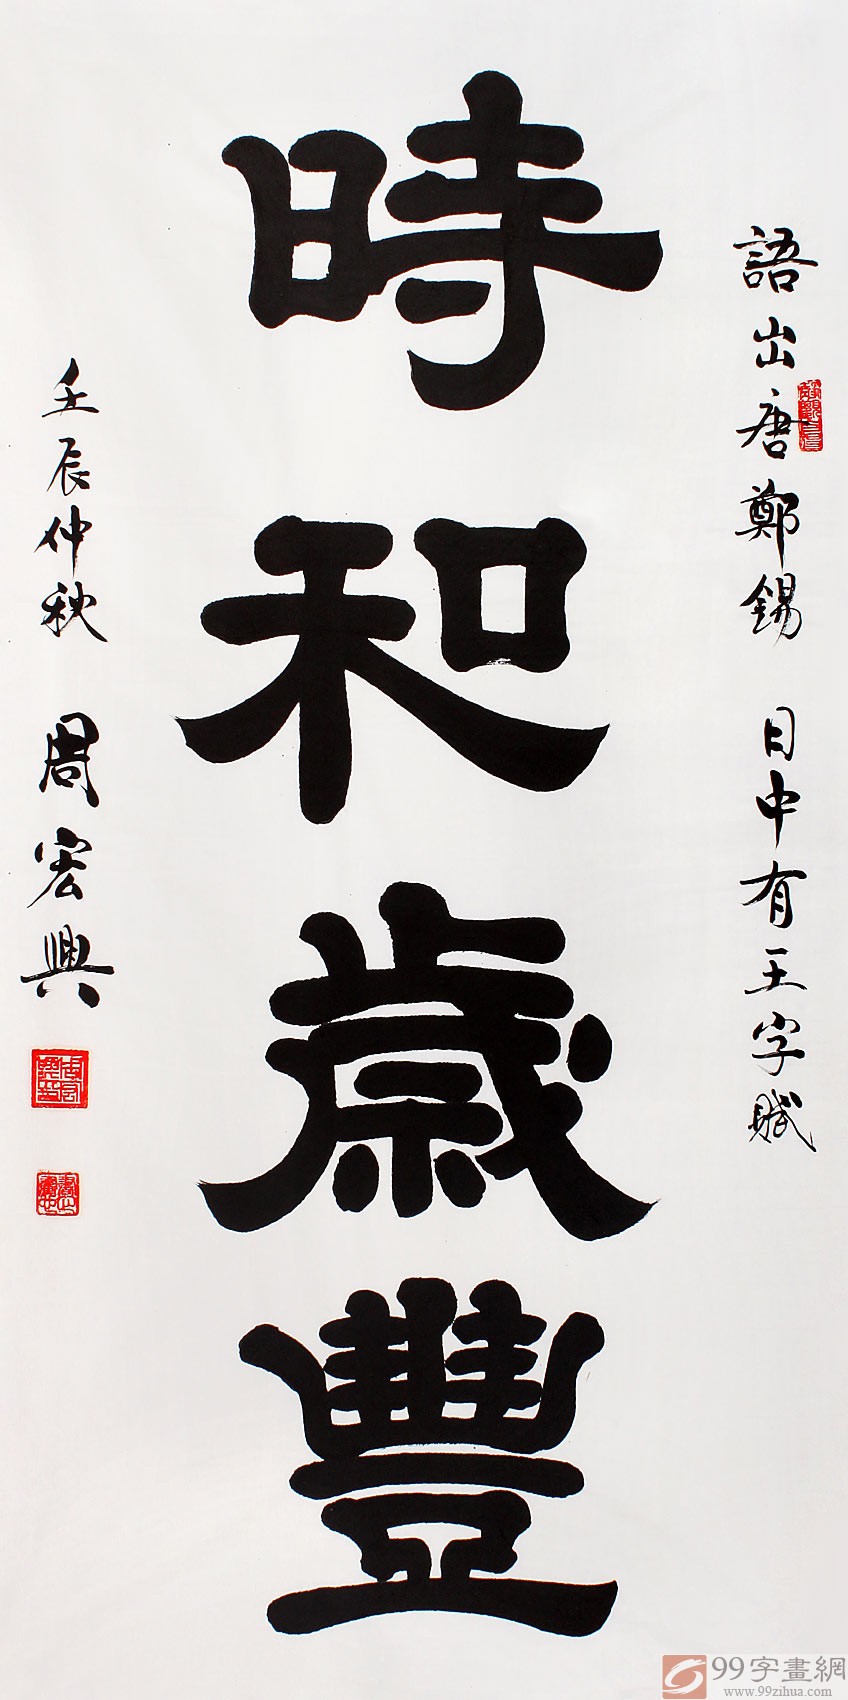 語出唐鄭錫 日中有王字賦
時和歲豐
壬辰仲秋 周宏興
99字畫網
www.99zihua.com